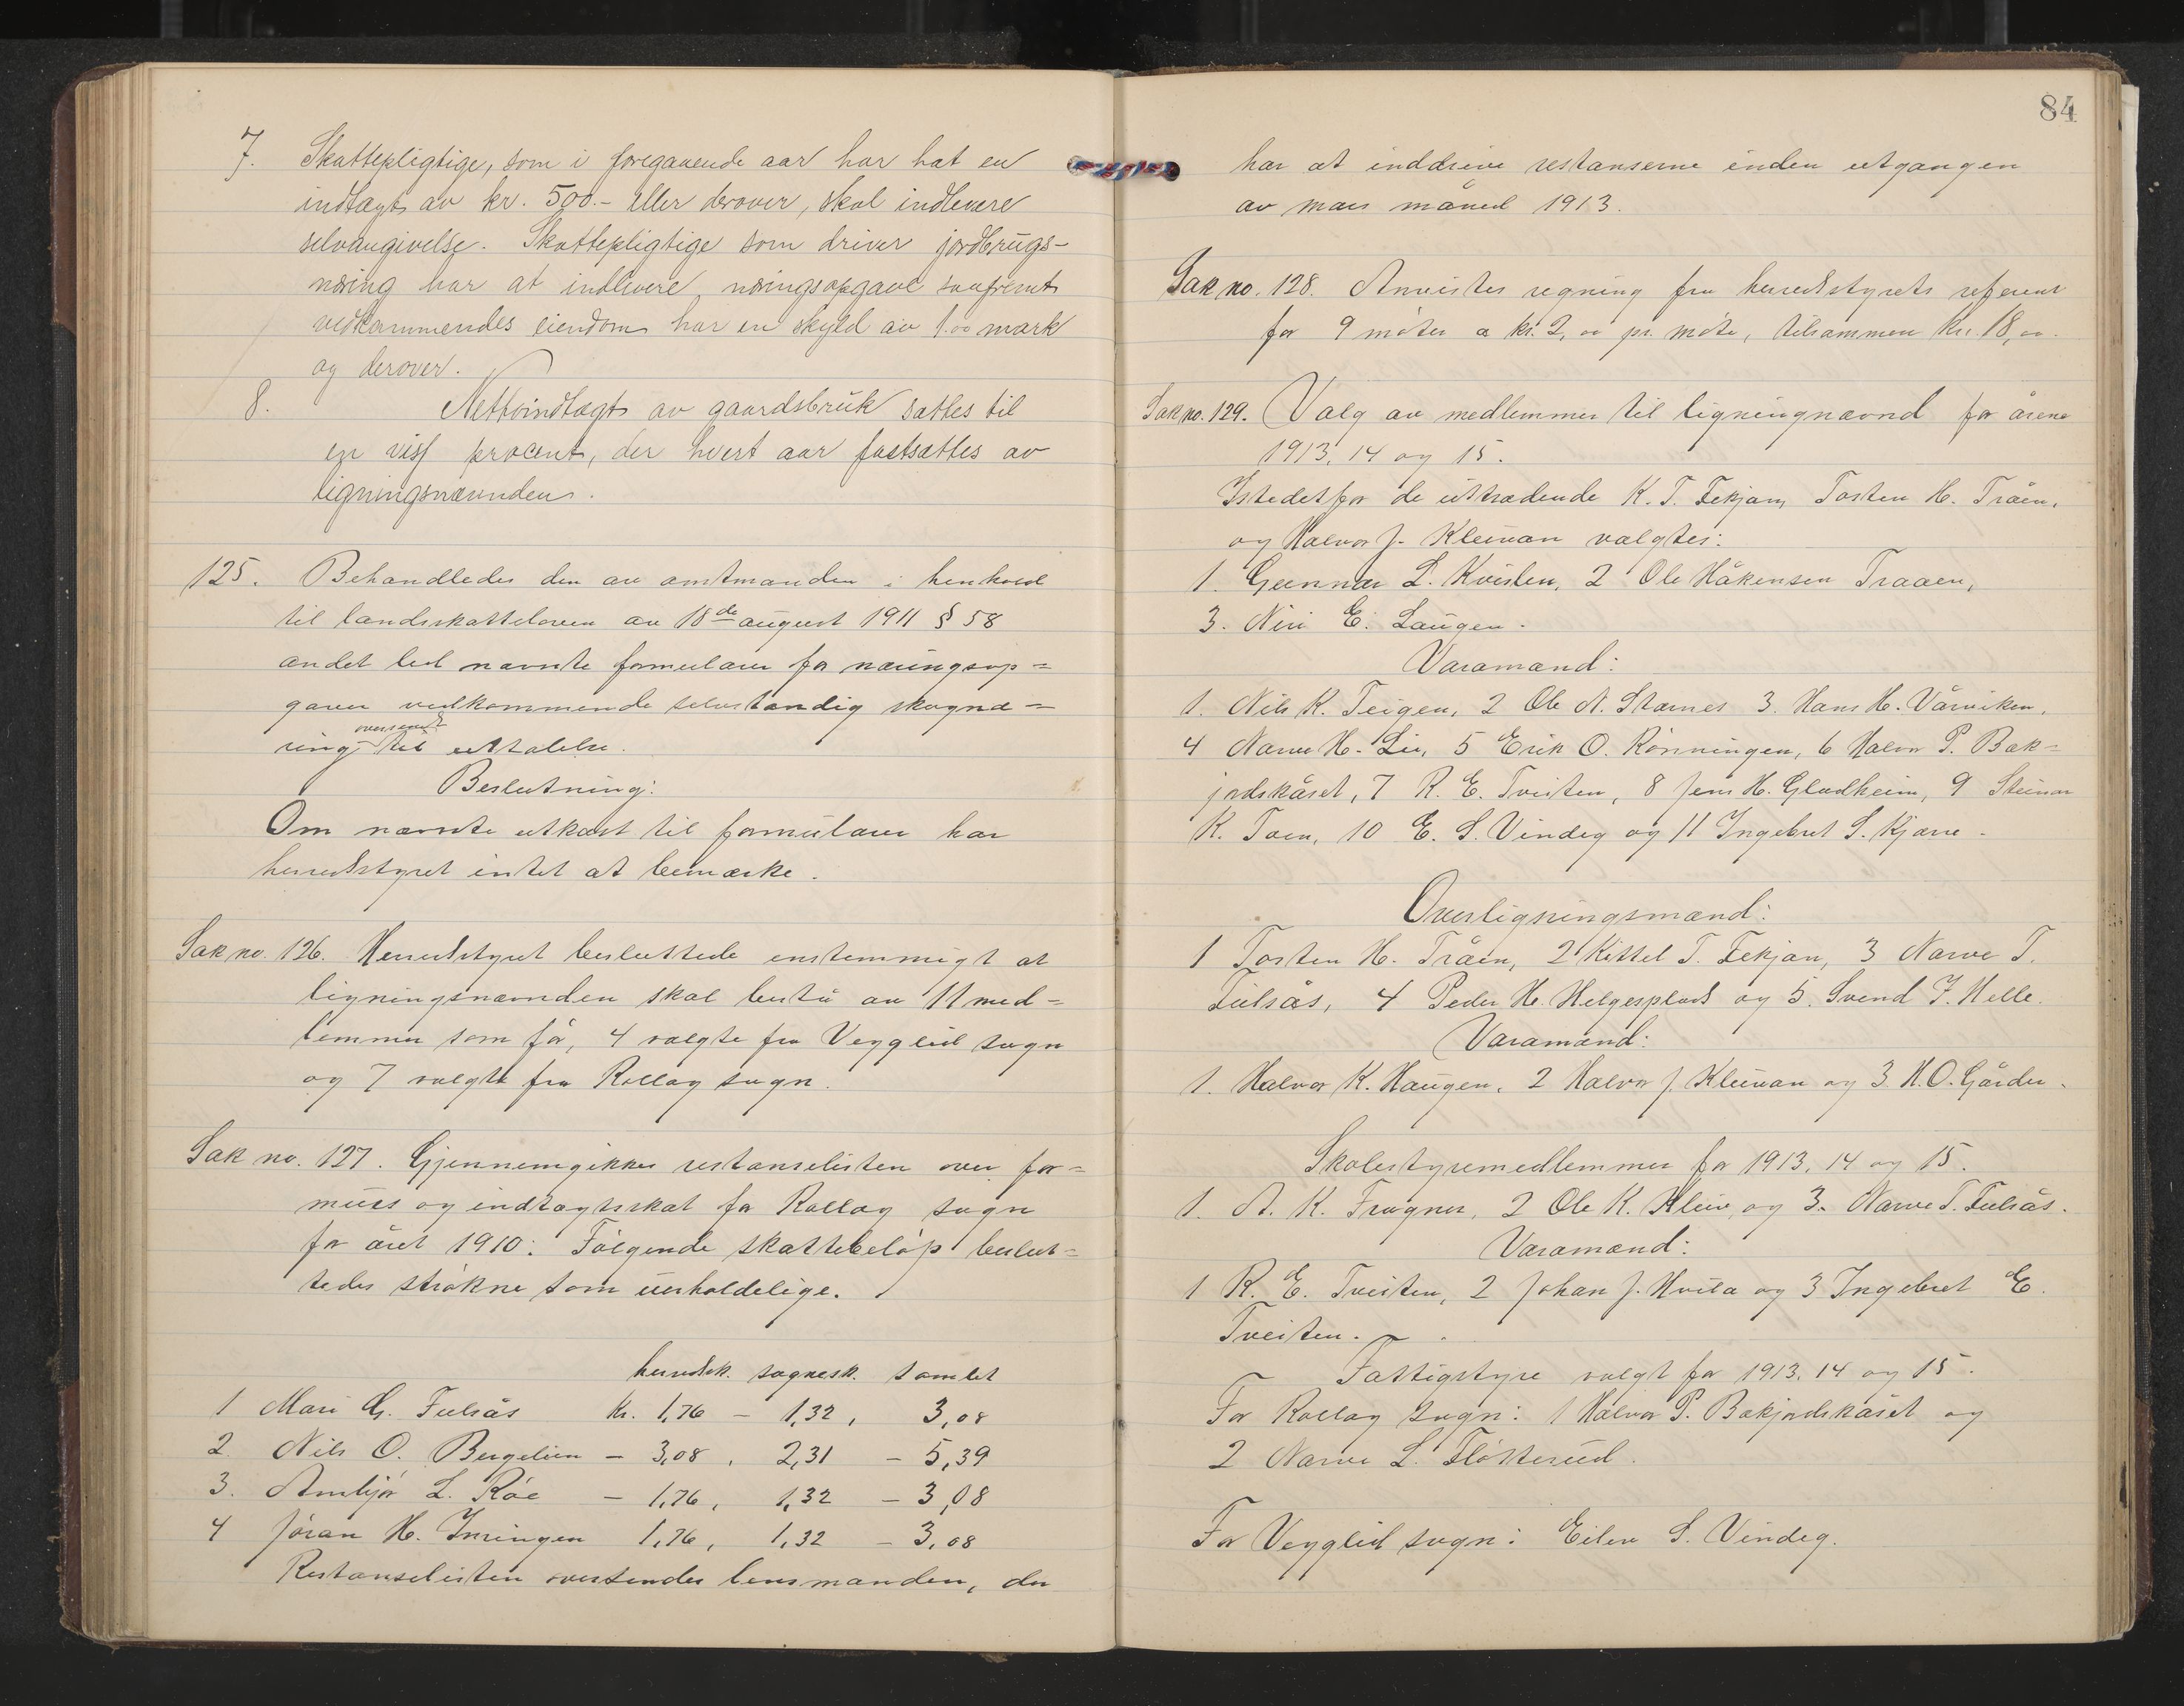 7. Skattepligtige, som i foregaaende aar har hat en
indtægt av kr. 500.- eller derover, skal indlevere
selvangivelse. Skattepligtige som driver jordbrugs-
næring har at indlevere næringsopgave saafremt
vedkommendes eiendom har en skyld av 1.00 mark
og derover.
8. Nettoindtægt av gaardsbruk sættes til
en viss procent, der hvert aar fastsættes av
ligningsnævnden.
125. Behandledes den av amtmanden i henhold
til landsskatteloven av 18de august 1911 § 58
andet led nævnte formularer for næringsop=
gaver vedkommende selvstændig skognæ=
oversendt
ring til uttalelse.
Beslutning:
Om nævnte utkast til formularer har
herredstyret intet at bemærke.
Sak no. 126. Herredstyret besluttede enstemmigt at
ligningsnævnden skal bestå av 11 med=
lemmer som før, 4 valgte fra Vegglid sogn
og 7 valgte fra Rollag sogn.
Sak no. 127. Gjennemgikkes restanselisten over for=
mues og indtægtsskat for Rollag sogn
for året 1910. Følgende skattebeløp beslut=
tedes strøkne som uerholdelige.
herredsk. sognesk. samlet
1 Mari G. Fulsås Kr. 1,76 - 1,32, 3,08
2 Nils O. Bergelien - 3,08, 2,31 - 5,39
3. Ambjør L. Røe - 1,76, 1,32 - 3,08
4 Jøran H. 1,76, 1,32 - 3,08
Restanselisten oversendes lensmanden, der
84
har at inddrive restanserne inden utgangen
av mars måned 1913.
Sak no. 128. Anvistes regning fra herredstyrets referent
for 9 møter a kr. 2,00 pr. møte, tilsammen kr. 18,00.
Sak no. 129. Valg av medlemmer til ligningnævnd for årene
1913, 14 og 15.
Istedetfor de uttrædende K. T. Fekjan, Tosten H. Tråen,
og Halvor J. Kleivan valgtes:
1. Gunnar L. Kvislen, 2 Ole Håkensen Traaen,
3. Niri E. Laugen.
Varamænd:
1. Nils K. Teigen, 2 Ole N. Stærnes 3. Hans H. Vårviken,
4 Narve H. Lie, 5 Erik O. Rønningen, 6 Halvor P. Bak=
jordskåset, 7 R. E. Tveiten, 8 Jens H. Gladheim, 9 Steinar
K. Toen, 10 E. S. Vindeg og 11 Ingebret S. Kjærre.
Overligningsmænd:
1 Tosten H. Tråen, 2 Kittel T. Fekjan, 3 Narve T.
Fulsås, 4 Peder H. Helgesplads og 5. Svend J. Helle.
Varamænd:
1. Halvor K. Haugen, 2 Halvor J. Kleivan og 3 H. O. Gården.
Skolestyremedlemmer for 1913, 14 og 15.
1. A. K. Frogner, 2 Ole K. Kleiv, og 3. Narve T. Fulsås.
Varamænd:
1 R. E. Tveiten, 2 Johan J. Hvila og 3 Ingebret E.
Tveiten.
Fattigstyre valgt for 1913, 14 og 15.
For Rollag sogn: 1 Halvor P. Bakjordskåset og
2 Narve L. Fløtterud.
For Vegglid sogn: Eilev S. Vindeg.